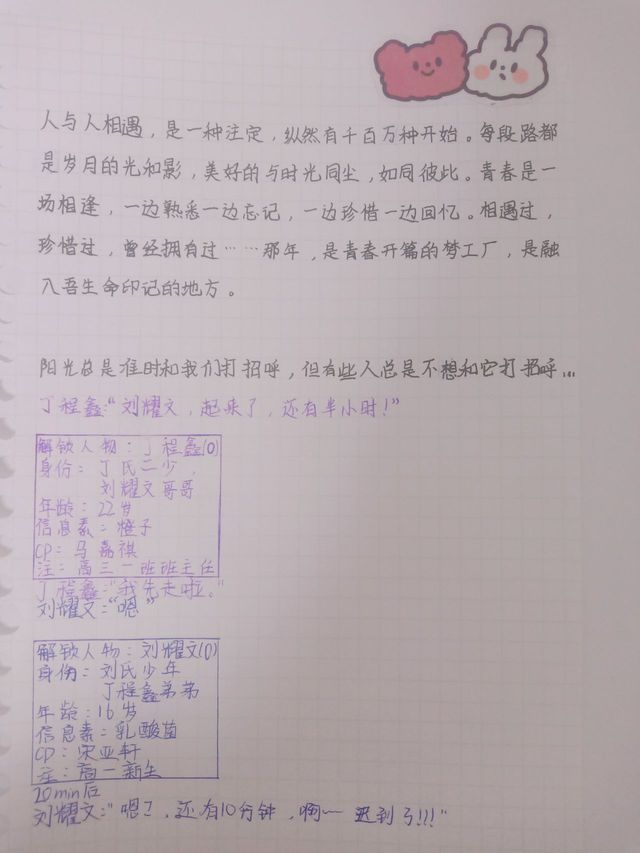 人与人相遇，是一种注定，纵然有千百万种开始。每段路都
是岁月的光和影，美好的与时光同尘，如同彼此。青春是一
场相逢，一边熟悉一边忘记，一边珍惜一边回忆。相遇过，
珍惜过，曾经拥有过……那年，是青春开篇的梦工厂，是融
入吾生命印记的地方。
阳光总是准时和我们打招呼，但有些人总是不想和它打招呼...
丁程鑫:“刘耀文，起来了，还有半小时!”
解锁人物：丁程鑫(O)
身份：丁氏二少，
刘耀文哥哥
年龄：22岁
信息素：橙子
CP：马嘉祺
注：高三一班班主任
丁程鑫:“我先走啦。”
刘耀文:“嗯”
解锁人物：刘耀文(O)
身份：刘氏少年
丁程鑫弟弟
年龄：16岁
信息素：乳酸菌
CP：宋亚轩
注：高一新生
20min后
刘耀文:“嗯？，还有10分钟，啊~ 迟到了!!!”